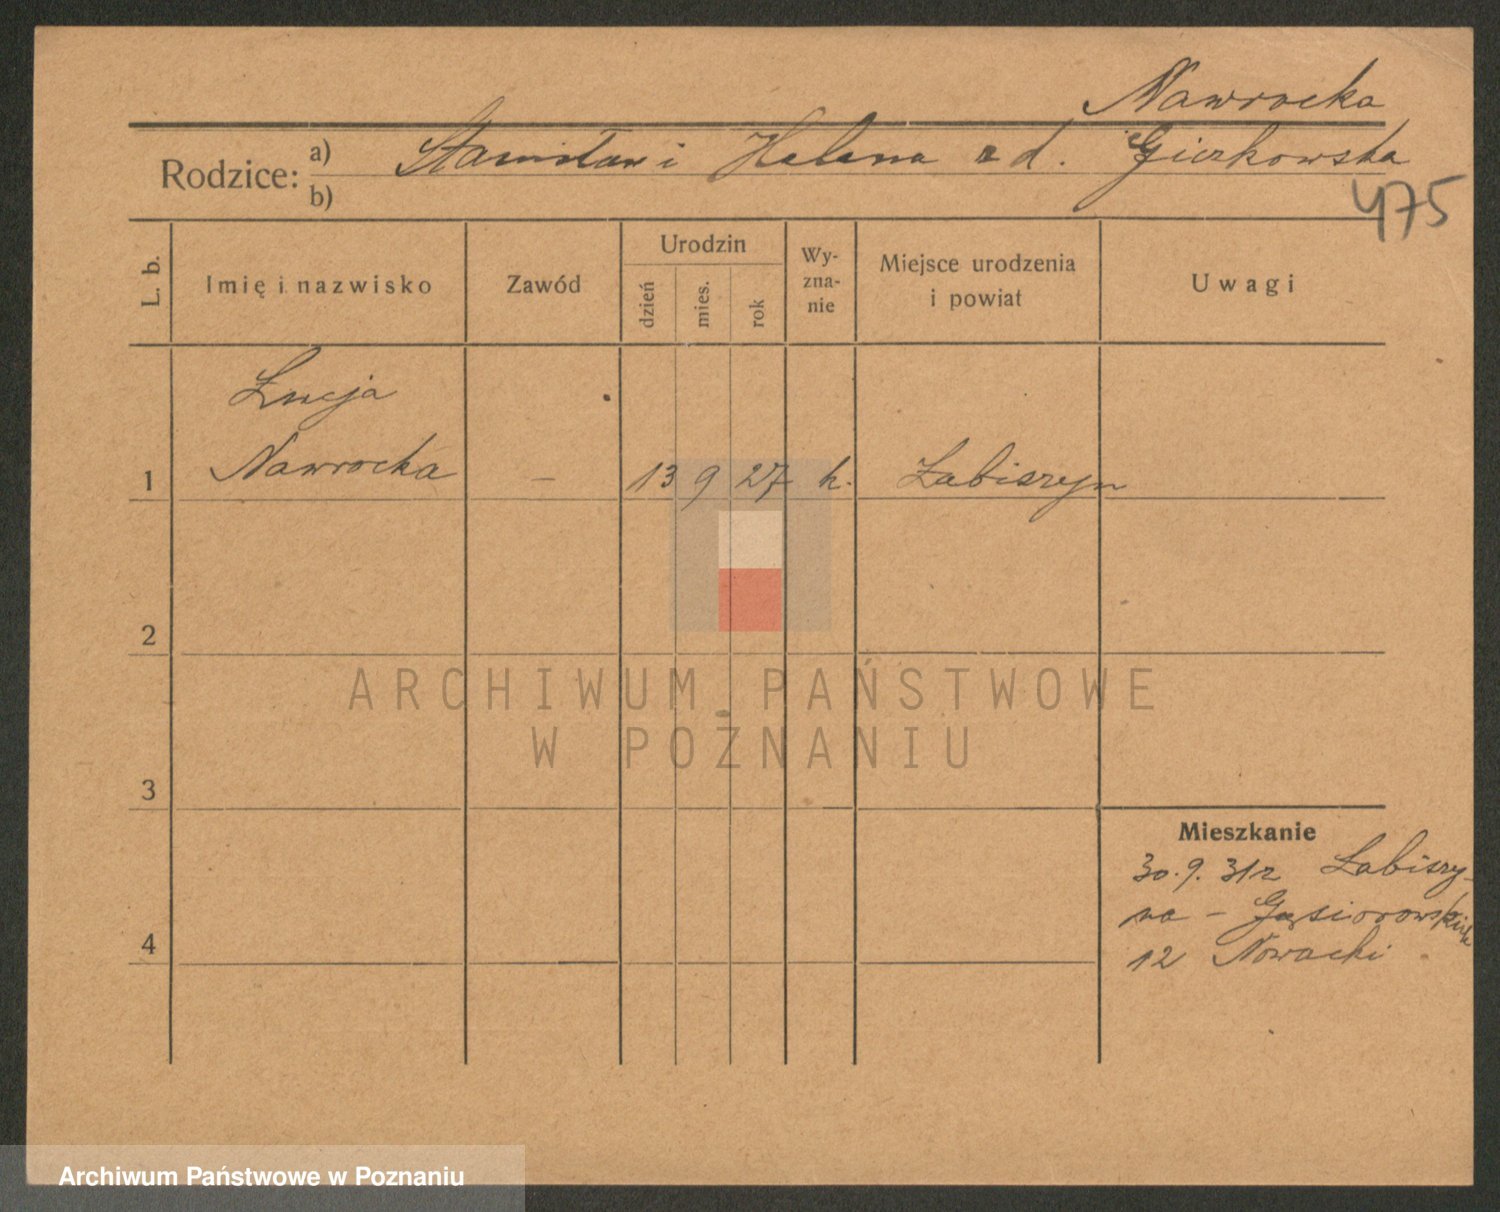 Nawrocka
Rodzice: a) Stanisław i Helena z d. Gierkowska
b)
475
L. b.
Imię i nazwisko
Zawód
Urodzin
dzień
mies.
rok
Wy-
zna-
nie
Miejsce urodzenia
i powiat
Uwagi
Łucja
1 Nawrocka – 13 9 27 k. Łabiszyn
2
3
4
ARCHIWUM PAŃSTWOWE
W POZNANIU
Mieszkanie
30.9.31r Łabiszy-
na – Gąsiorowskich
12 Nowacki
Archiwum Państwowe w Poznaniu